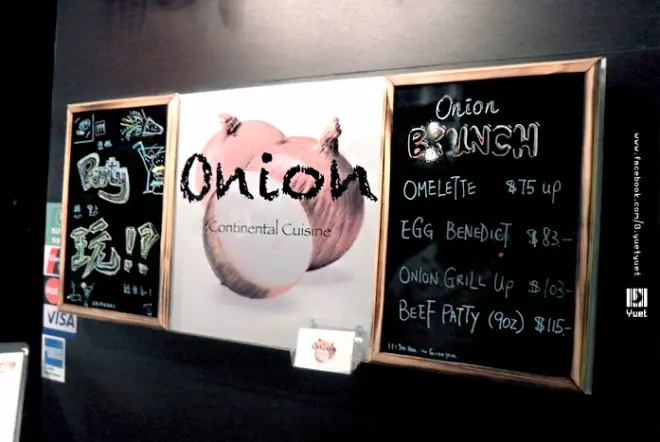 Party
玩!!
VISA
Onion
Continental Cuisine
Onion
Onion
BRUNCH
OMELETTE $75 up
EGG BENEDICT $83-
ONION GRILL Up $103-
BEEF PATTY (9oz) $115-
www.facebook.com/B.yuetyuet
Yuet